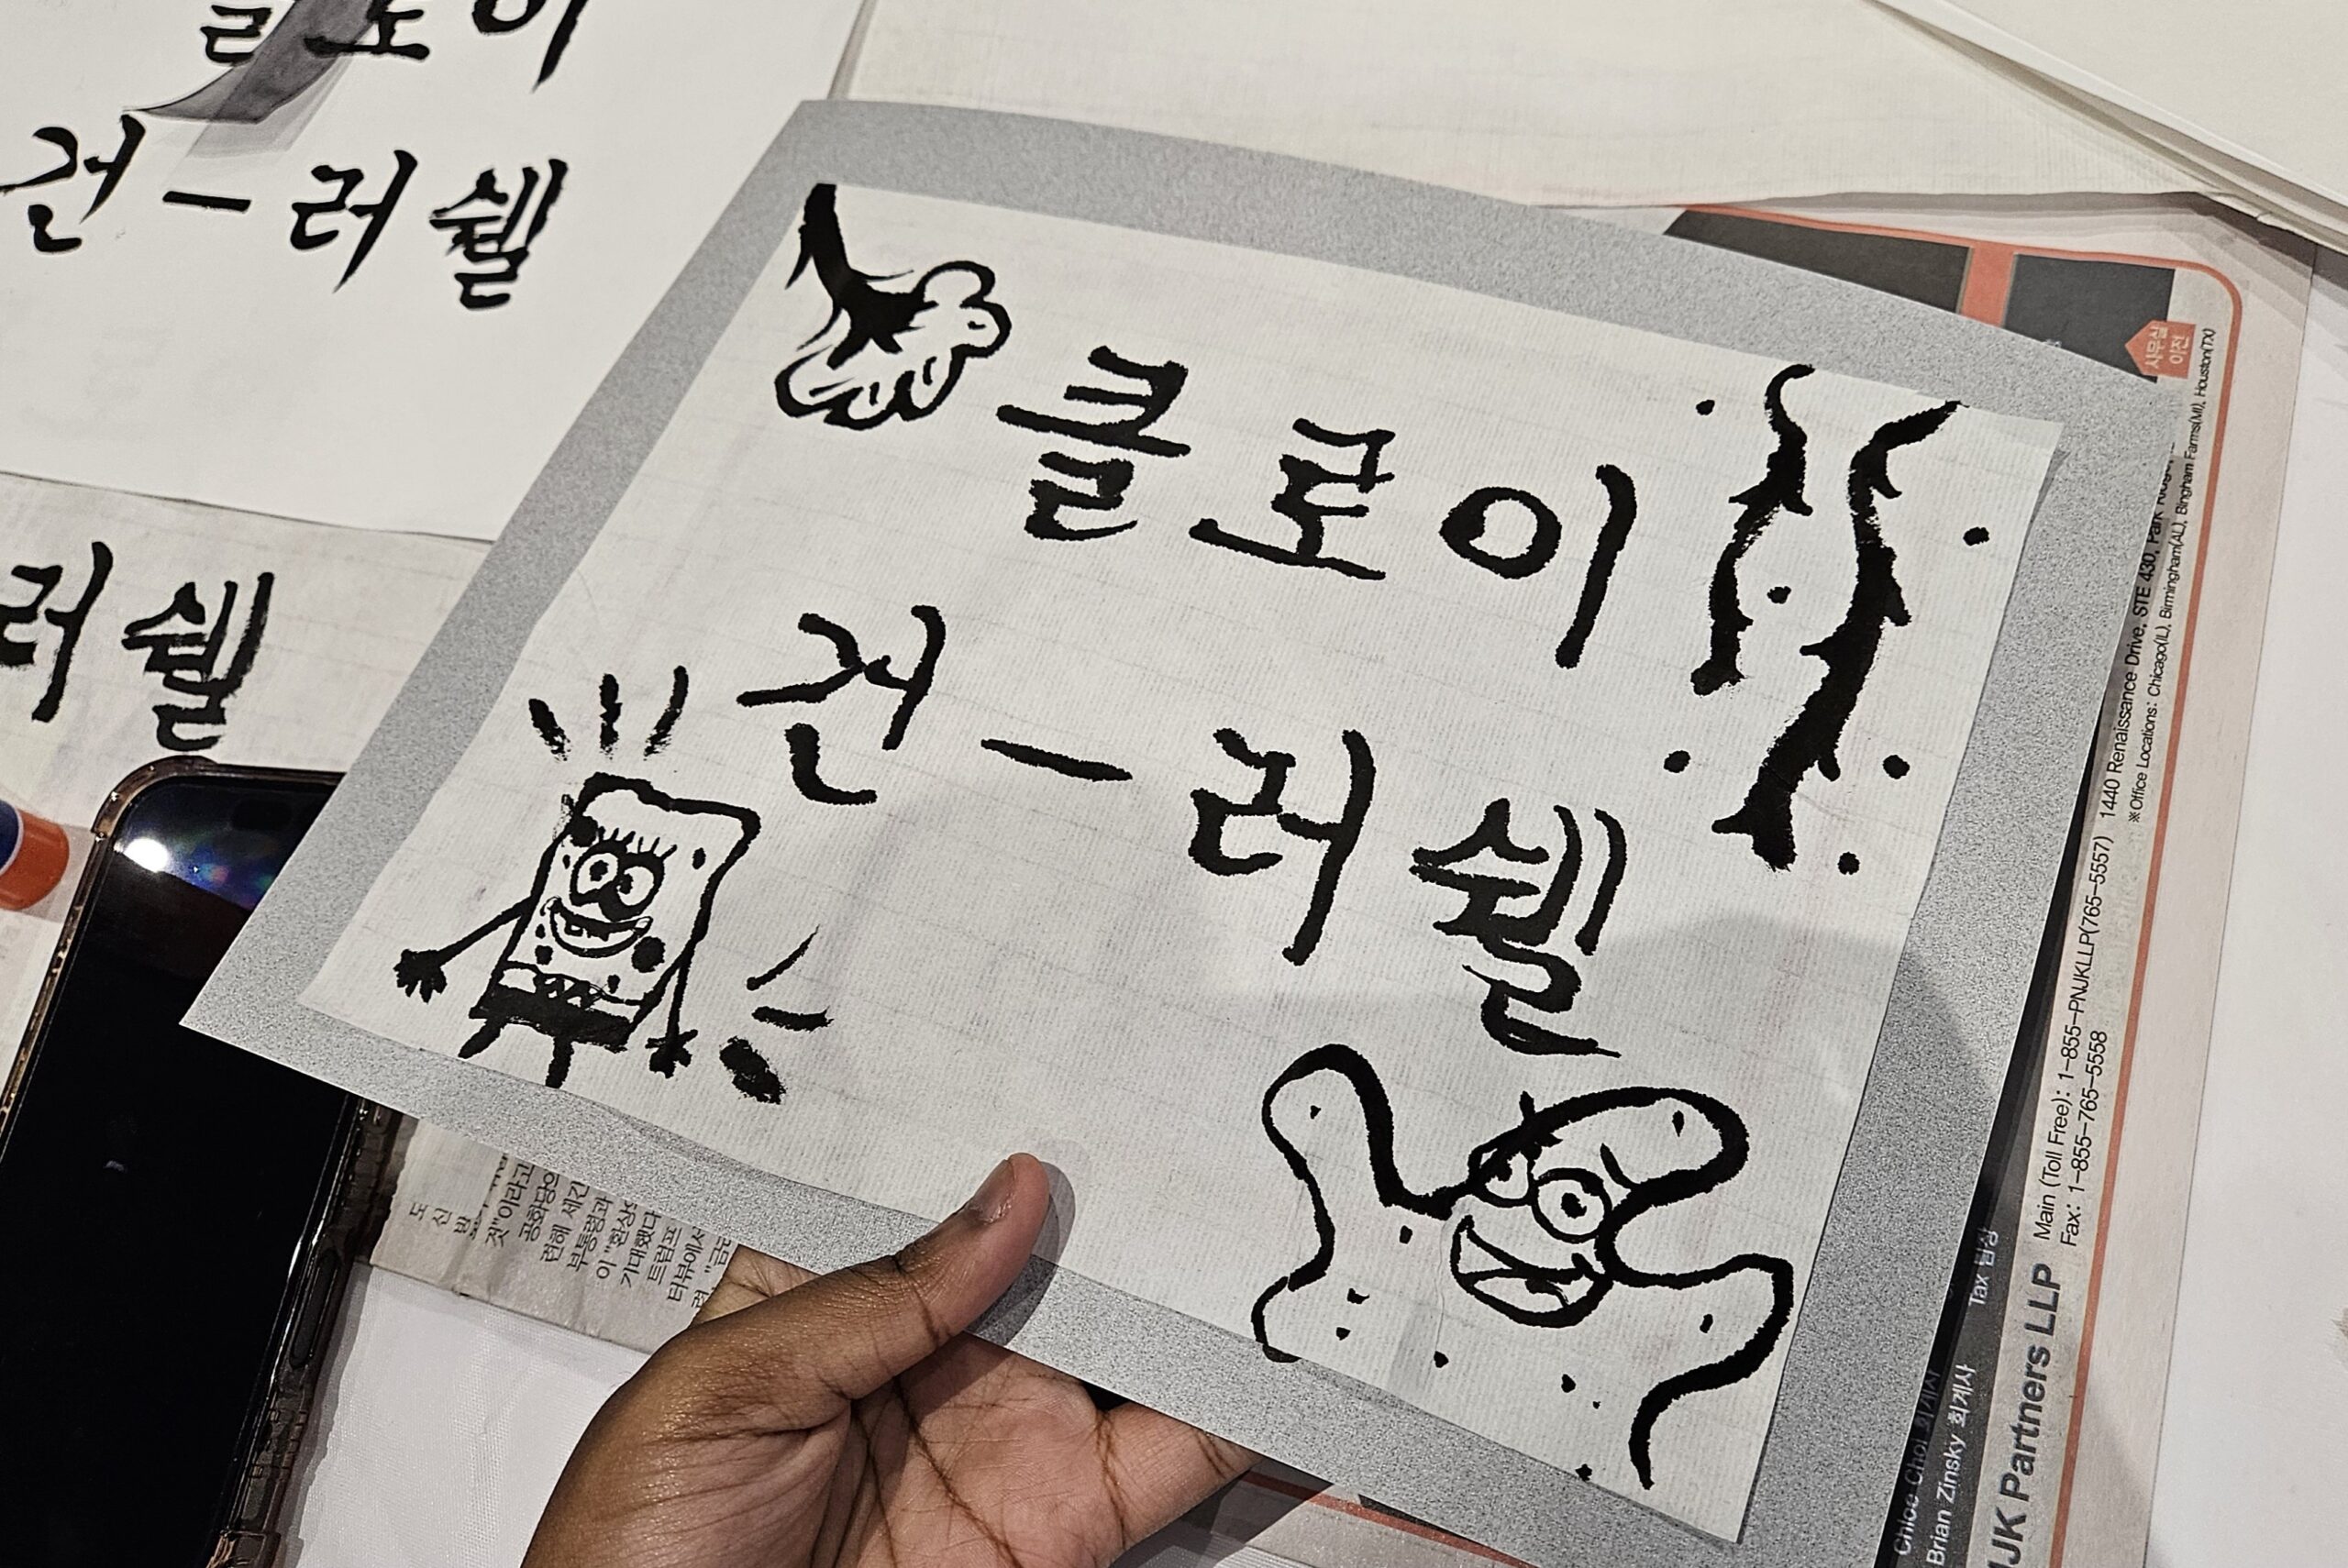 클로이
건-러쉘
클로이
건-러쉘
러쉘
사무실
이전
1440 Renaissance Drive, STE 430, Park Ridge,
※Office Locations: Chicago(IL), Birmingham(AL), Bingham Farms(MI), Houston(TX)
Main (Toll Free): 1-855-PNJKLLP(765-5557)
Fax: 1-855-765-5558
JK Partners LLP
Tax 담당
Chloe Choi 회계사
Brian Zinsky 회계사
것"이라고
공화당의
전해 세간
부통령과
이 "환상
기대했다
트럼프
터뷰에서